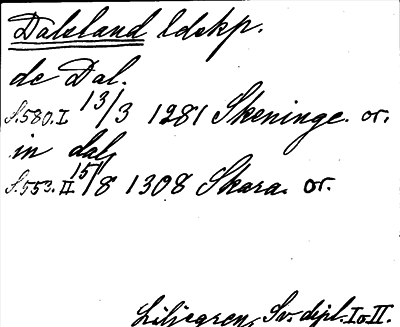 Dalsland ldskp.
de Dal.
S.580.I 13/3 1281 Skeninge. or.
in dal,
S.553.II 15/8 1308 Skara. or.
Liljegren, Sv. dipl. I o. II.